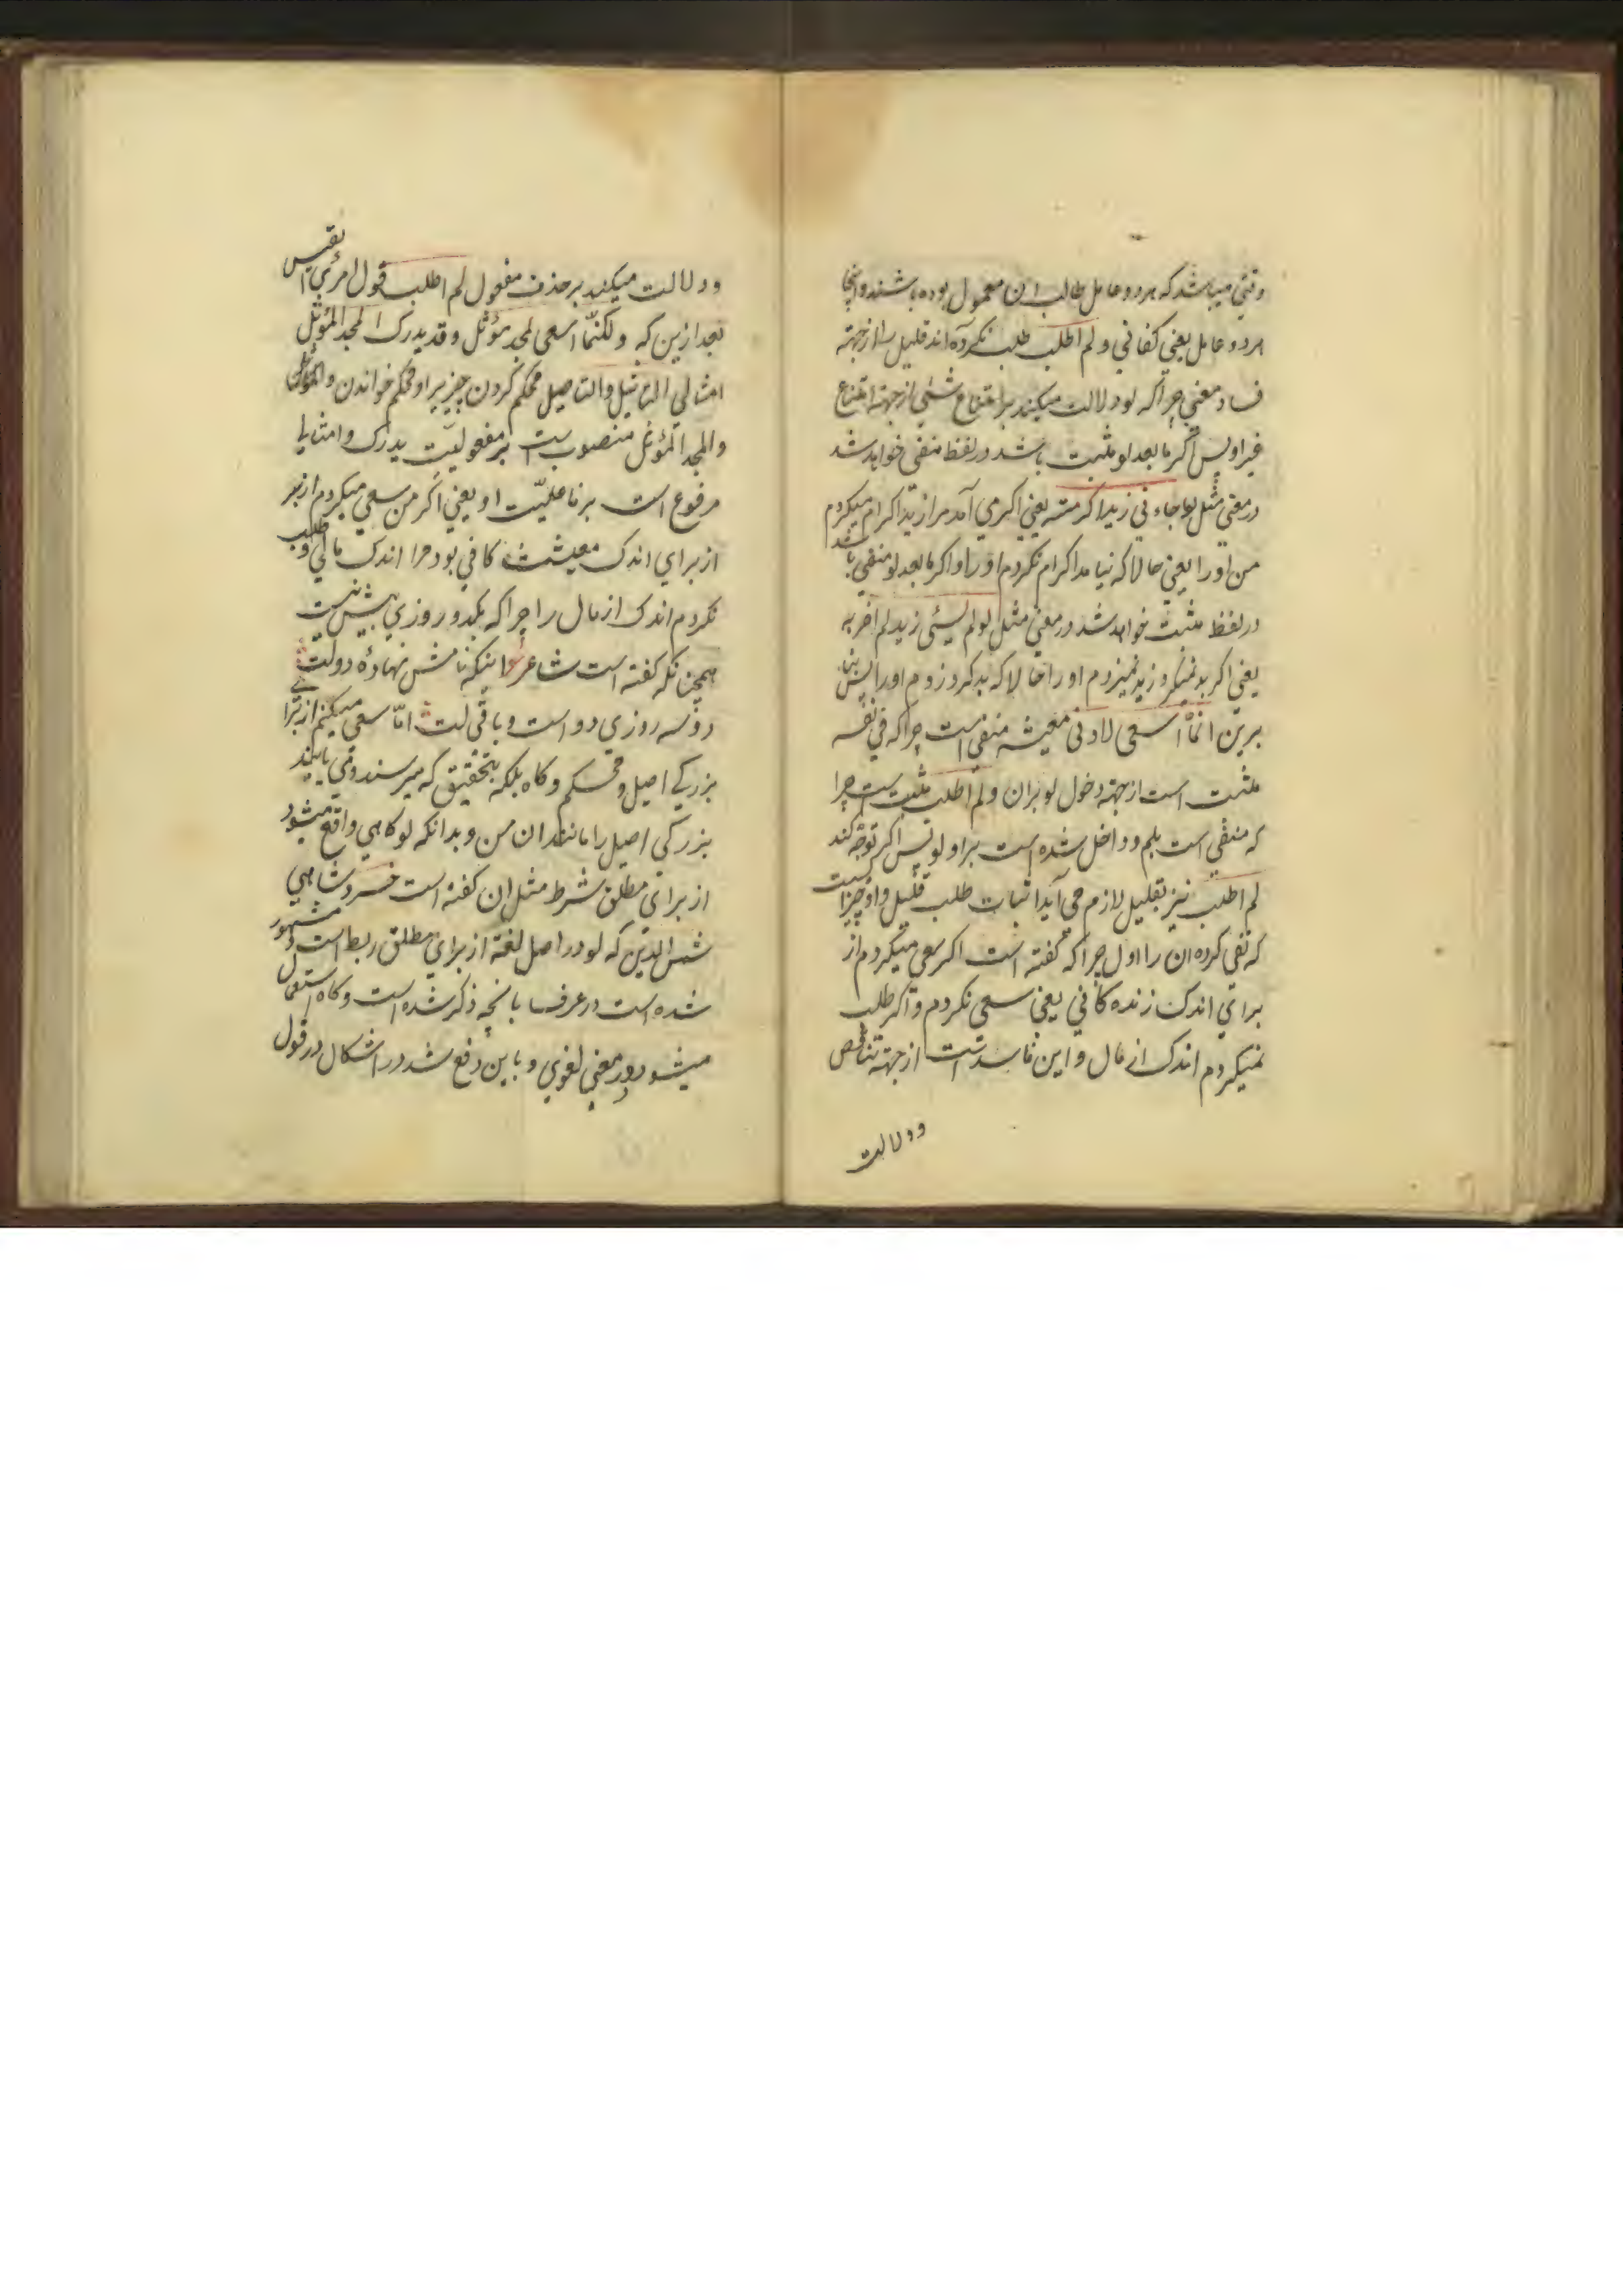 وقتی میباشد که هر دو عامل طالب ان معمول بوده باشند و اینجا
هر دو عامل یعنی کفانی و لم اطلب طلب نکرده اند قلیل را از جهته
فساد معنی چرا که لو دلالت میکند بر امتناع شیٔی از جهته امتناع
غیر او پس اگر مابعد لو مثبت باشد در لفظ منفی خواهد شد
در معنی مثل لو جاءنی زید اکرمته یعنی اگر می آمد مرا زید اکرام میکردم
من او را یعنی حالا که نیامد اکرام نکردم او را و اگر مابعد لو منفی باشد
در لفظ مثبت خواهد شد در معنی مثل لو لم یسئی زید لم اضربه
یعنی اگر بد نمیکرد زید نمیزدم او را حالا که بد کرد زدم او را پس بنا
برین انما اسعی لادنی معیشه منفی است چرا که فی نفسه
مثبت است از جهته دخول لو بر ان و لم اطلب مثبت است چرا
که منفی است بلم و داخل شده است بر او لو پس اگر توجّه کند
لم اطلب نیز بقلیل لازم می آید اثبات طلب قلیل و او چیزیست
که نفی کرده ان را اول چرا که گفته است اگر سعی میکردم از
برای اندک زنده کانی یعنی سعی نکردم و اگر طلب
نمیکردم اندک از مال و این فاسد است از جهته تناقص
و دلالت
و دلالت میکند بر حذف مفعول لم اطلب قول امرئ القیس
بعد ازین که ولکنّما اسعی لمجد مؤثل وقد یدرک المجد المؤثل
امثالی التاثیل والتاصیل محکم کردن چیزیرا و محکم خواندن و المؤثل
والمجد المؤثل منصوب است بر مفعولیّت یدرک و امثالی
مرفوع است بر فاعلیّت او یعنی اگر من سعی میکردم از بر
از برای اندک معیشت کافی بود مرا اندک مالی و طلب
نکردم اندک از مال را چرا که یکدو روزی بیش نیست
همچنانکه گفته است شاعر اینکه نامش نهادهٔ دولت
دوسه روزی دو است و باقی لت امّا سعی میکنم از برای
بزرگی اصیل و محکم و کاه بلکه بتحقیق که میرسند و می یابند
بزرگی اصیل را مانندان من و بدانکه لو کاهی واقع میشود
از برای مطلق شرط مثل ان گفته است خسرو شاهی
شمس الدین که لو در اصل لغة از برای مطلق ربط است و مشهور
شده است در عرف بانچه ذکر شده است و کاه استعمال
میشود در معنی لغوی و باین دفع شد در اشکال در قول